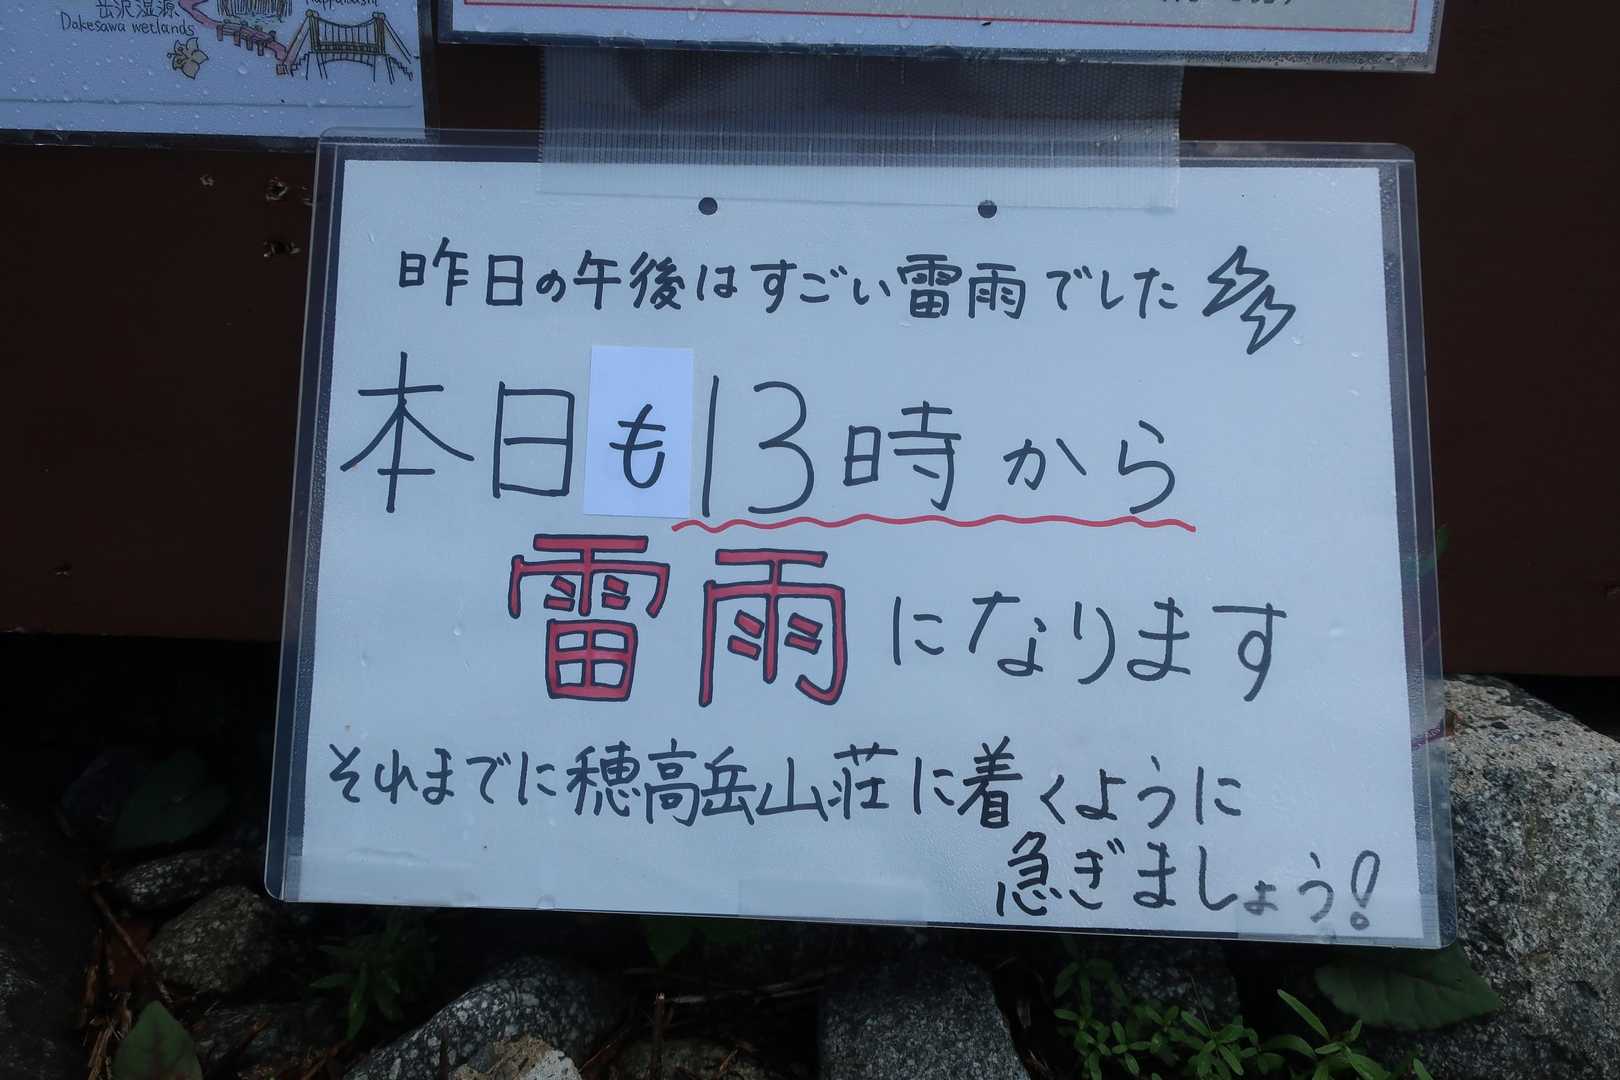 岳沢湿原
Dakesawa wetlands
昨日の午後はすごい雷雨でした
本日も13時から
雷雨になります
それまでに穂高岳山荘に着くように
急ぎましょう!